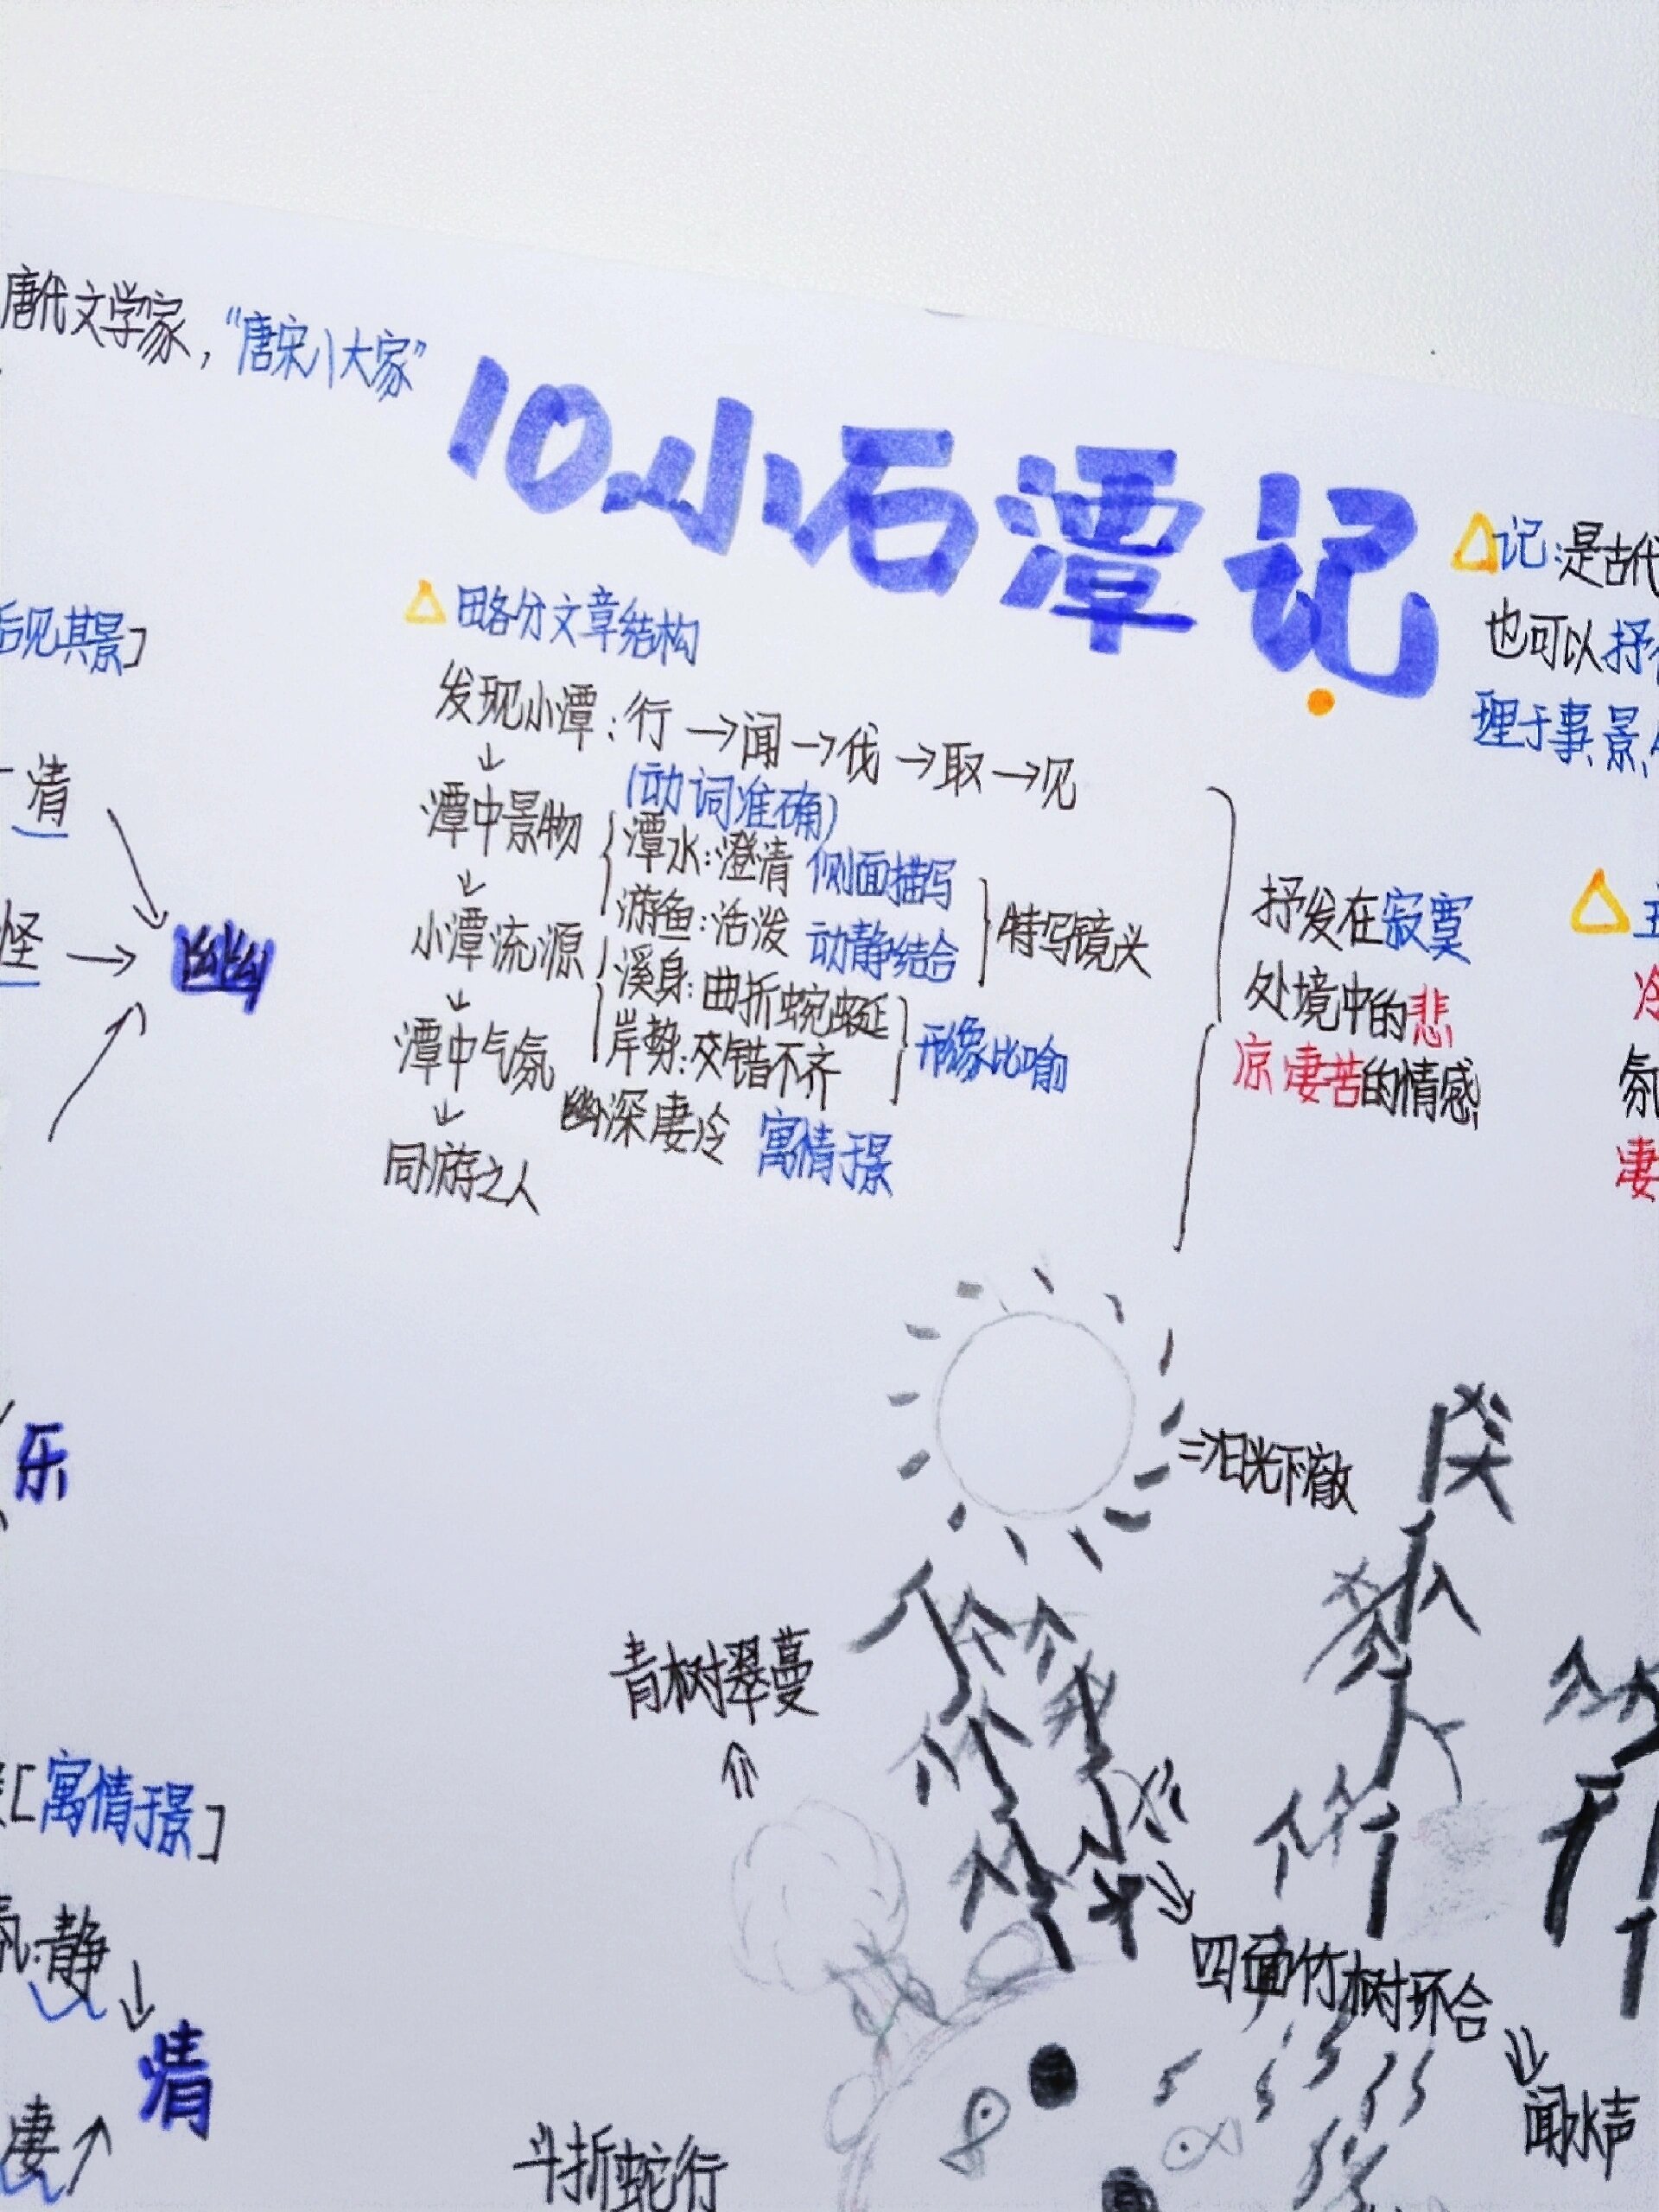 唐代文学家，“唐宋八大家”
10.小石潭记
△记：是古代
也可以抒
理于事、景、
后见其景]
清
怪
幽
△略分文章结构
发现小潭：行→闻→伐→取→见
(动词准确)
潭中景物
潭水：澄清 侧面描写
游鱼：活泼 动静结合
特写镜头
小潭流源
溪身：曲折蜿蜒
岸势：交错不齐
形象比喻
潭中气氛
幽深凄冷 寓情于景
同游之人
抒发在寂寞
处境中的悲
凉凄苦的情感
△
冷
氛
凄
乐
⇒日光下澈
青树翠蔓
[寓情于景]
静
清
凄
四面竹树环合
闻水声
斗折蛇行